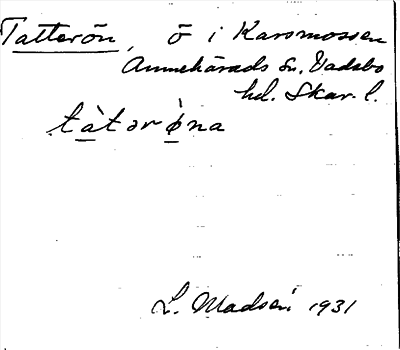 Tatterön, ö i Karsmossen
Amnehärads sn. Vadsbo
hd. Skar. l.
tàtərø̀na
L. Madsén 1931